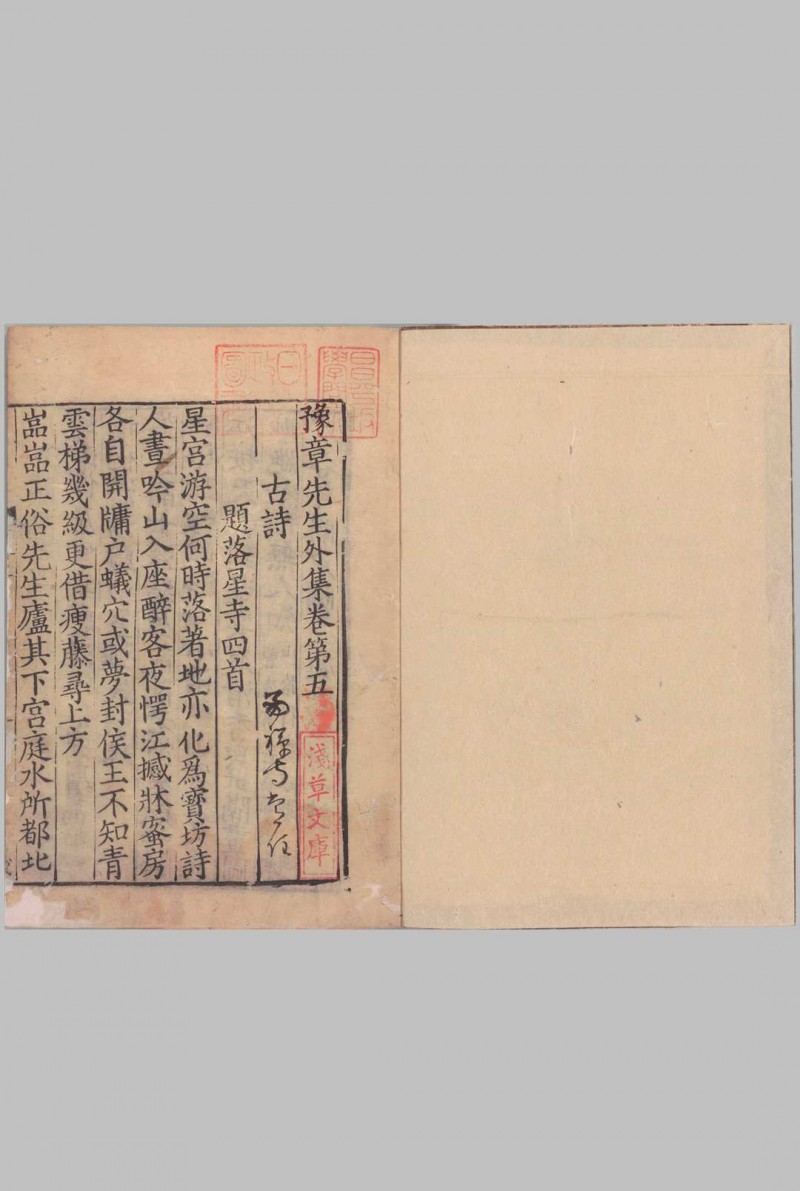 豫章先生外集卷第五
淺草文庫
古詩
題落星寺四首
星宫游空何時落著地亦化爲寳坊詩
人晝吟山入座醉客夜愕江撼牀蜜房
各自開牖户蟻穴或夢封侯王不知青
雲梯幾級更借瘦藤尋上方
嵓嵓正俗先生廬其下宫庭水所都北